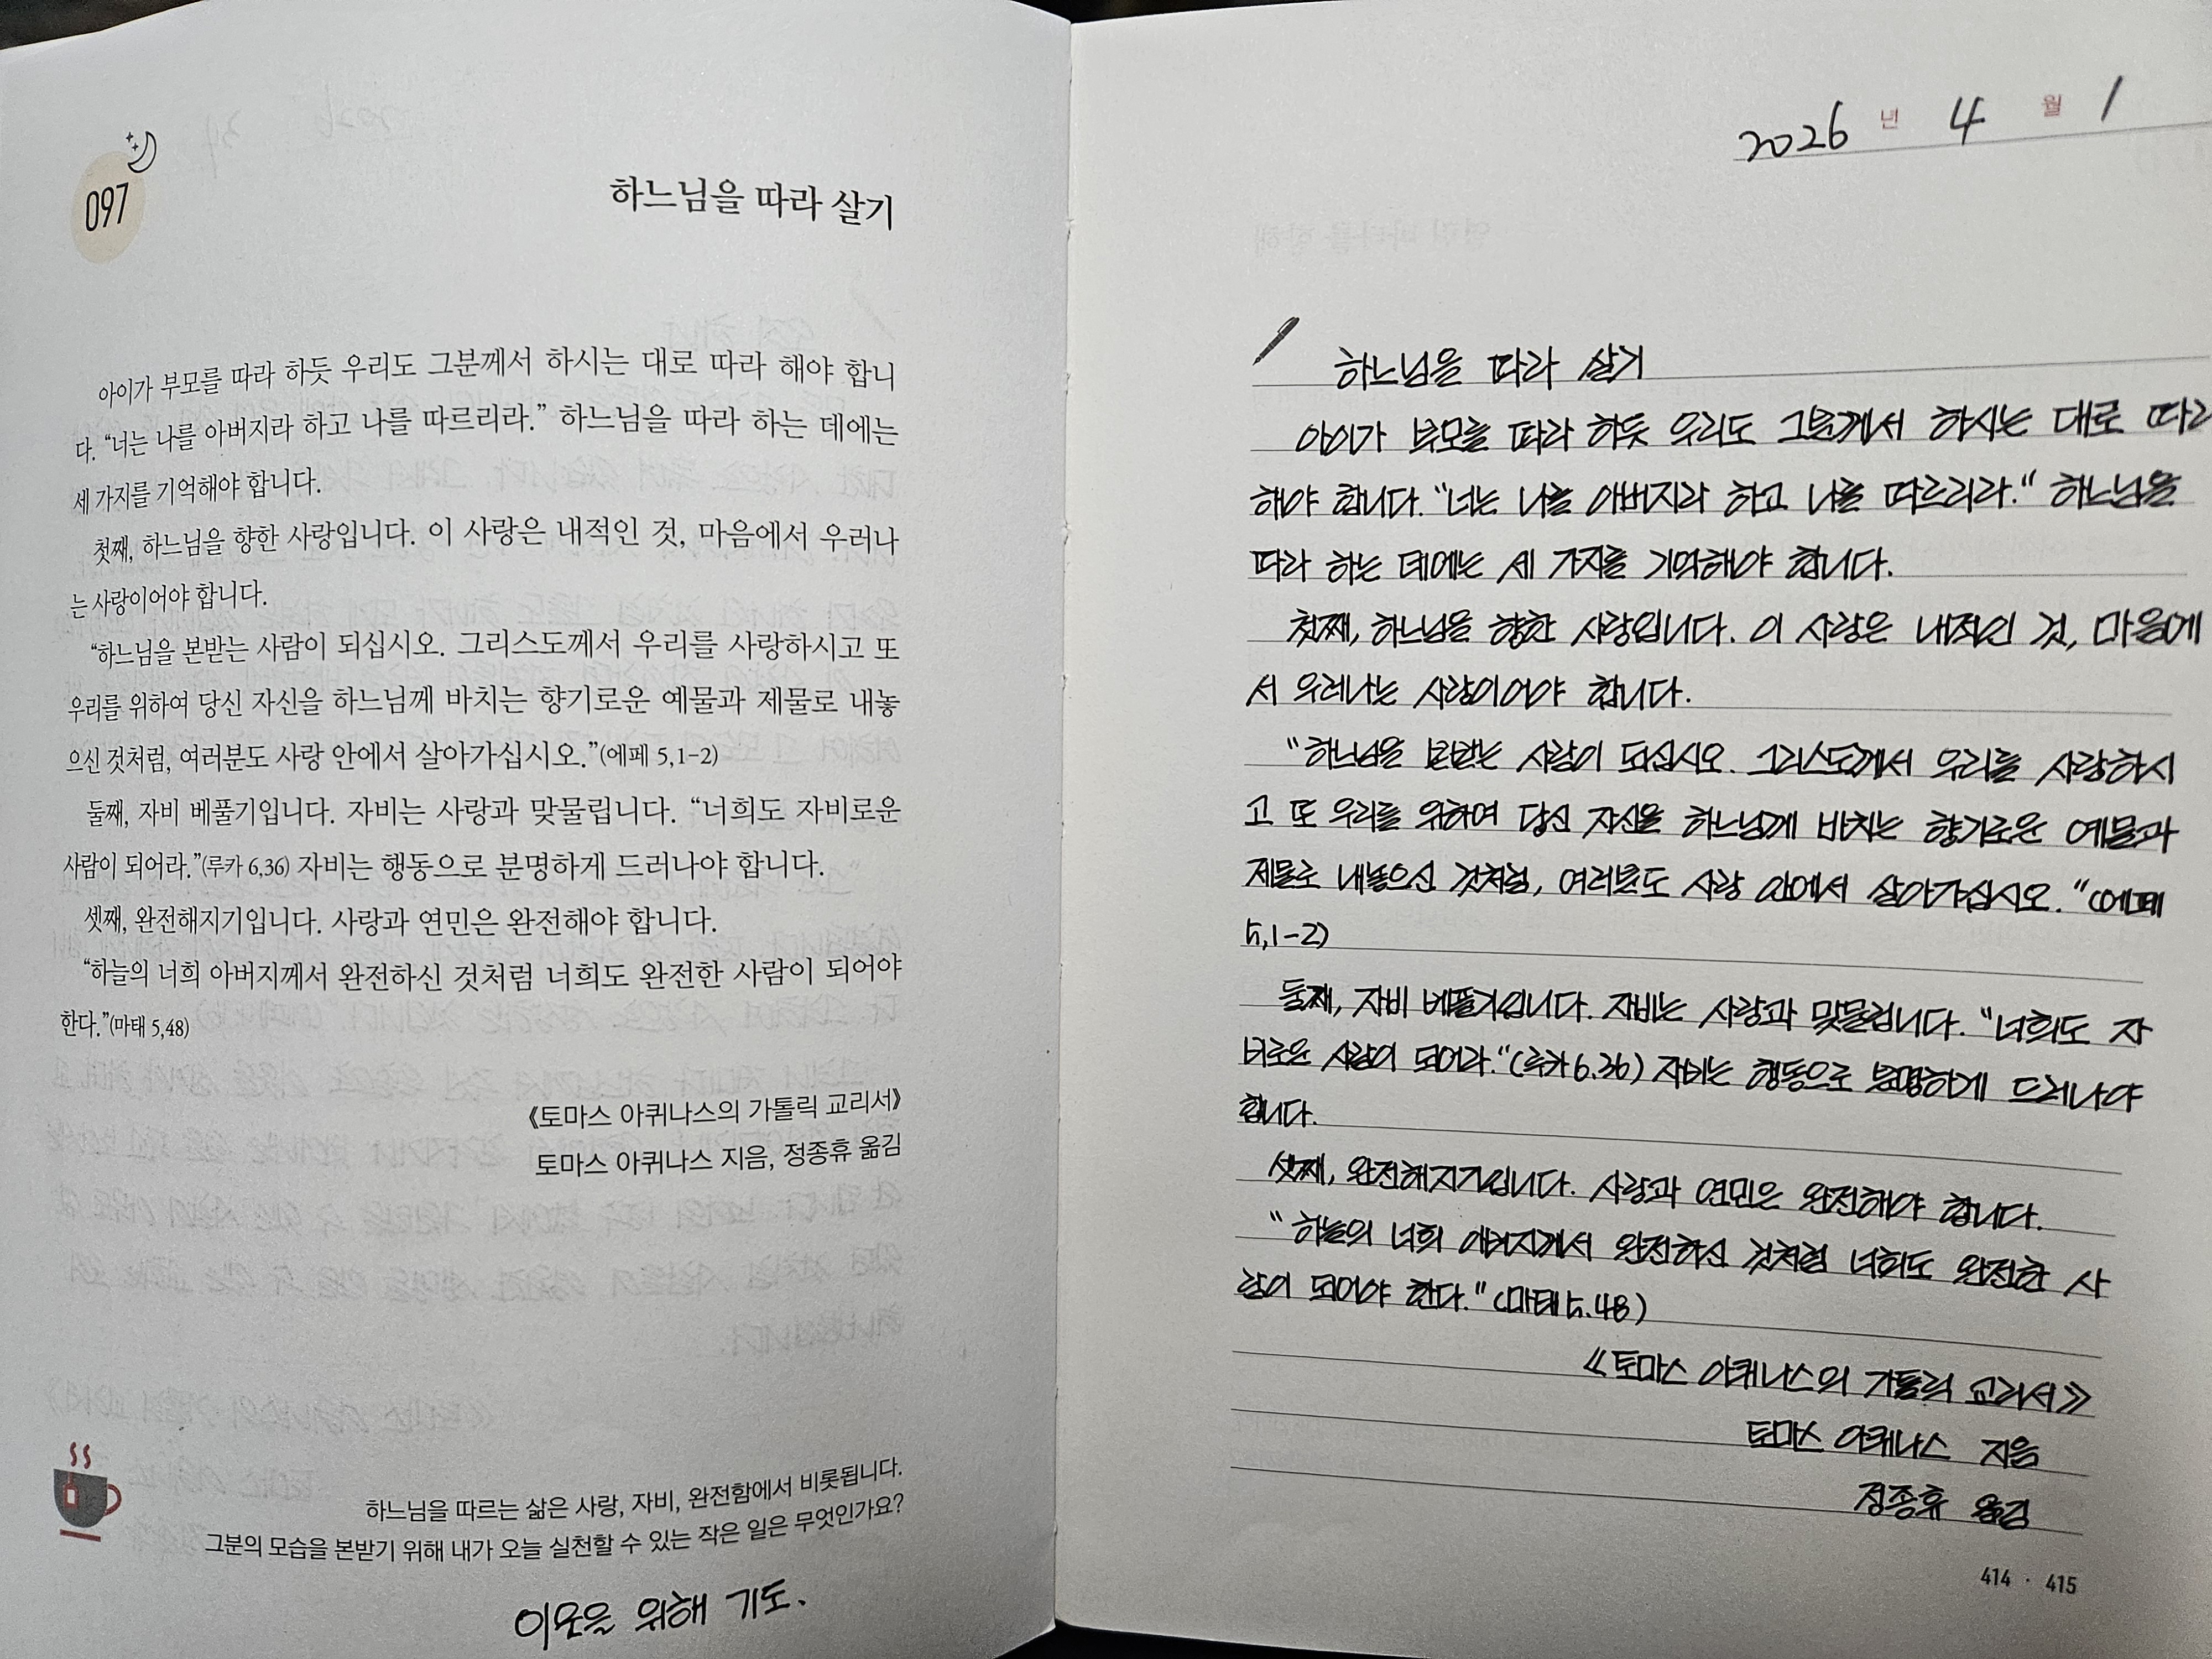 097
하느님을 따라 살기
아이가 부모를 따라 하듯 우리도 그분께서 하시는 대로 따라 해야 합니
다. “너는 나를 아버지라 하고 나를 따르리라.” 하느님을 따라 하는 데에는
세 가지를 기억해야 합니다.
첫째, 하느님을 향한 사랑입니다. 이 사랑은 내적인 것, 마음에서 우러나
는 사랑이어야 합니다.
“하느님을 본받는 사람이 되십시오. 그리스도께서 우리를 사랑하시고 또
우리를 위하여 당신 자신을 하느님께 바치는 향기로운 예물과 제물로 내놓
으신 것처럼, 여러분도 사랑 안에서 살아가십시오.”(에페 5,1-2)
둘째, 자비 베풀기입니다. 자비는 사랑과 맞물립니다. “너희도 자비로운
사람이 되어라.”(루카 6,36) 자비는 행동으로 분명하게 드러나야 합니다.
셋째, 완전해지기입니다. 사랑과 연민은 완전해야 합니다.
“하늘의 너희 아버지께서 완전하신 것처럼 너희도 완전한 사람이 되어야
한다.”(마태 5,48)
《토마스 아퀴나스의 가톨릭 교리서》
토마스 아퀴나스 지음, 정종휴 옮김
하느님을 따르는 삶은 사랑, 자비, 완전함에서 비롯됩니다.
그분의 모습을 본받기 위해 내가 오늘 실천할 수 있는 작은 일은 무엇인가요?
이웃을 위해 기도.
2026 년 4 월 1
하느님을 따라 살기
아이가 부모를 따라 하듯 우리도 그분께서 하시는 대로 따라
해야 합니다. “너는 나를 아버지라 하고 나를 따르리라.“ 하느님을
따라 하는 데에는 세 가지를 기억해야 합니다.
첫째, 하느님을 향한 사랑입니다. 이 사랑은 내적인 것, 마음에
서 우러나는 사랑이어야 합니다.
“하느님을 본받는 사람이 되십시오. 그리스도께서 우리를 사랑하시
고 또 우리를 위하여 당신 자신을 하느님께 바치는 향기로운 예물과
제물로 내놓으신 것처럼, 여러분도 사랑 안에서 살아가십시오. “(에페
5,1-2)
둘째, 자비 베풀기입니다. 자비는 사랑과 맞물립니다. “너희도 자
비로운 사람이 되어라.“(루카 6.36) 자비는 행동으로 분명하게 드러나야
합니다.
셋째, 완전해지기입니다. 사랑과 연민은 완전해야 합니다.
“하늘의 너희 아버지께서 완전하신 것처럼 너희도 완전한 사
람이 되어야 한다.“ (마태 5.48)
《토마스 아퀴나스의 가톨릭 교리서》
토마스 아퀴나스 지음
정종휴 옮김
414 · 415